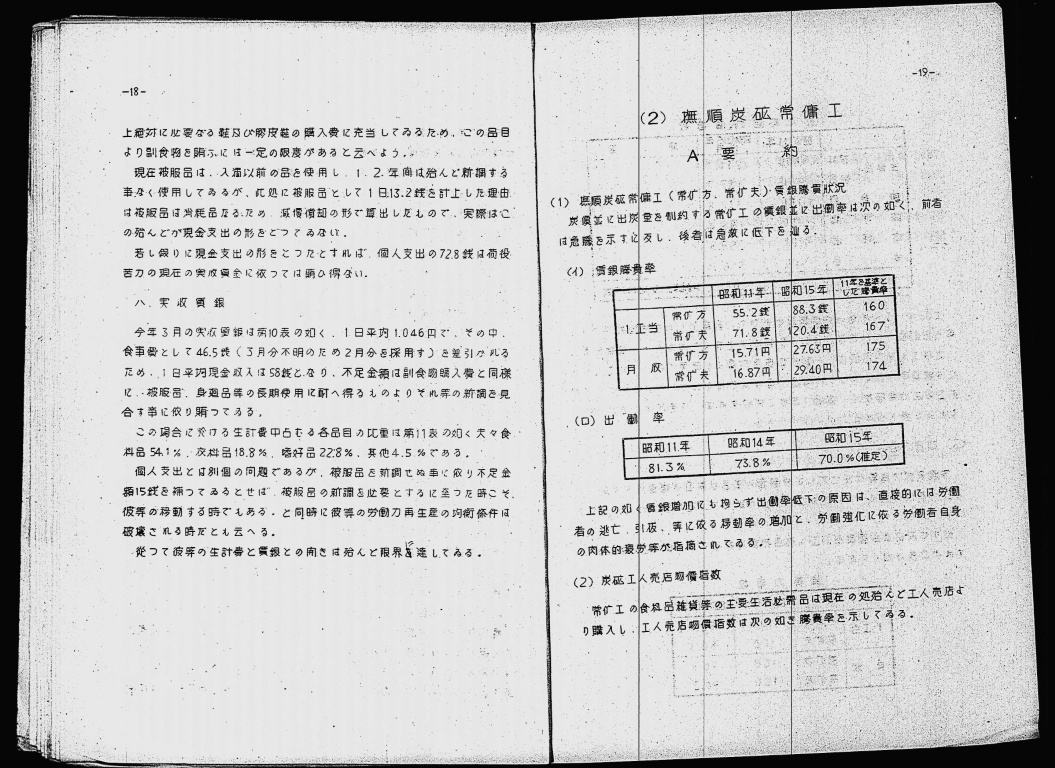 -18-
上絶対に必要なる鞋及び膠皮鞋の購入費に充当してゐるため、この品目
より副食物を賄ふには一定の限度があると云へよう。
現在被服品は、入満以前の品を使用し、1、2、年間は殆んど新調する
事なく使用してゐるが、此処に被服品として1日13.2銭を計上した理由
は被服品は消耗品なるため、減価償却の形で算出したもので、実際はこ
の殆んどが現金支出の形をとつてゐない。
若し假りに現金支出の形をとつたとすれば、個人支出の72.8銭は荷役
苦力の現在の実收賃金に依つては賄ひ得ない。
ハ、実收賃銀
今年3月の実收賃銀は第10表の如く、1日平均1.046円で、その中、
食事費として46.5銭（3月分不明のため2月分を採用す）を差引かれる
ため、1日平均現金収入は58銭となり、不足金額は副食物購入費と同様
に、被服品、身廻品等の長期使用に耐へ得るものよりそれ等の新調を見
合す事に依り賄つてゐる。
この場合に於ける生計費中占むる各品目の比重は第11表の如く夫々食
料品54.1%、衣料品18.8%、嗜好品22.8%、其他4.5%である。
個人支出とは別個の問題であるが、被服品を新調せぬ事に依り不足金
額15銭を補つてゐるとせば、被服品の新調を必要とするに至つた時こそ、
彼等の移動する時でもある。と同時に彼等の労働力再生産の均衡條件は
破壊される時だとも云へる。
従つて彼等の生計費と賃銀との開きは殆んど限界に達してゐる。
-19-
(2) 撫順炭砿常傭工
A 要 約
(1) 撫順炭砿常傭工（常傭方、常傭夫）賃銀騰貴狀況
炭價並に出炭量を制約する常傭工の賃銀並に出働率は次の如く、前者
は急騰を示すに反し、後者は急激に低下を辿る。
(イ) 賃銀騰貴率
昭和11年 昭和15年 11年を基準とした騰貴率
1.工当 常傭方 55.2銭 88.3銭 160
常傭夫 71.8銭 120.4銭 167
月收 常傭方 15.71円 27.63円 175
常傭夫 16.87円 29.40円 174
(ロ) 出働率
昭和11年 昭和14年 昭和15年
81.3% 73.8% 70.0%(推定)
上記の如く賃銀増加にも拘らず出働率低下の原因は、直接的には労働
者の逃亡、引抜、等に依る移動率の増加と、労働強化に依る労働者自身
の肉体的疲労等が指摘されてゐる。
(2) 炭砿工人売店物價指数
常傭工の食料品雑貨等の主要生活必需品は現在の処殆んど工人売店よ
り購入し、工人売店物價指数は次の如き騰貴率を示してゐる。